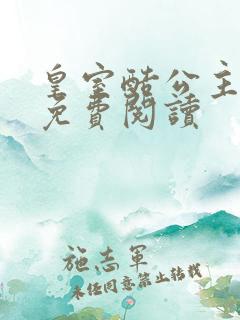 皇室酷公主
免費閱讀
施志軍
未任同意禁止轉載